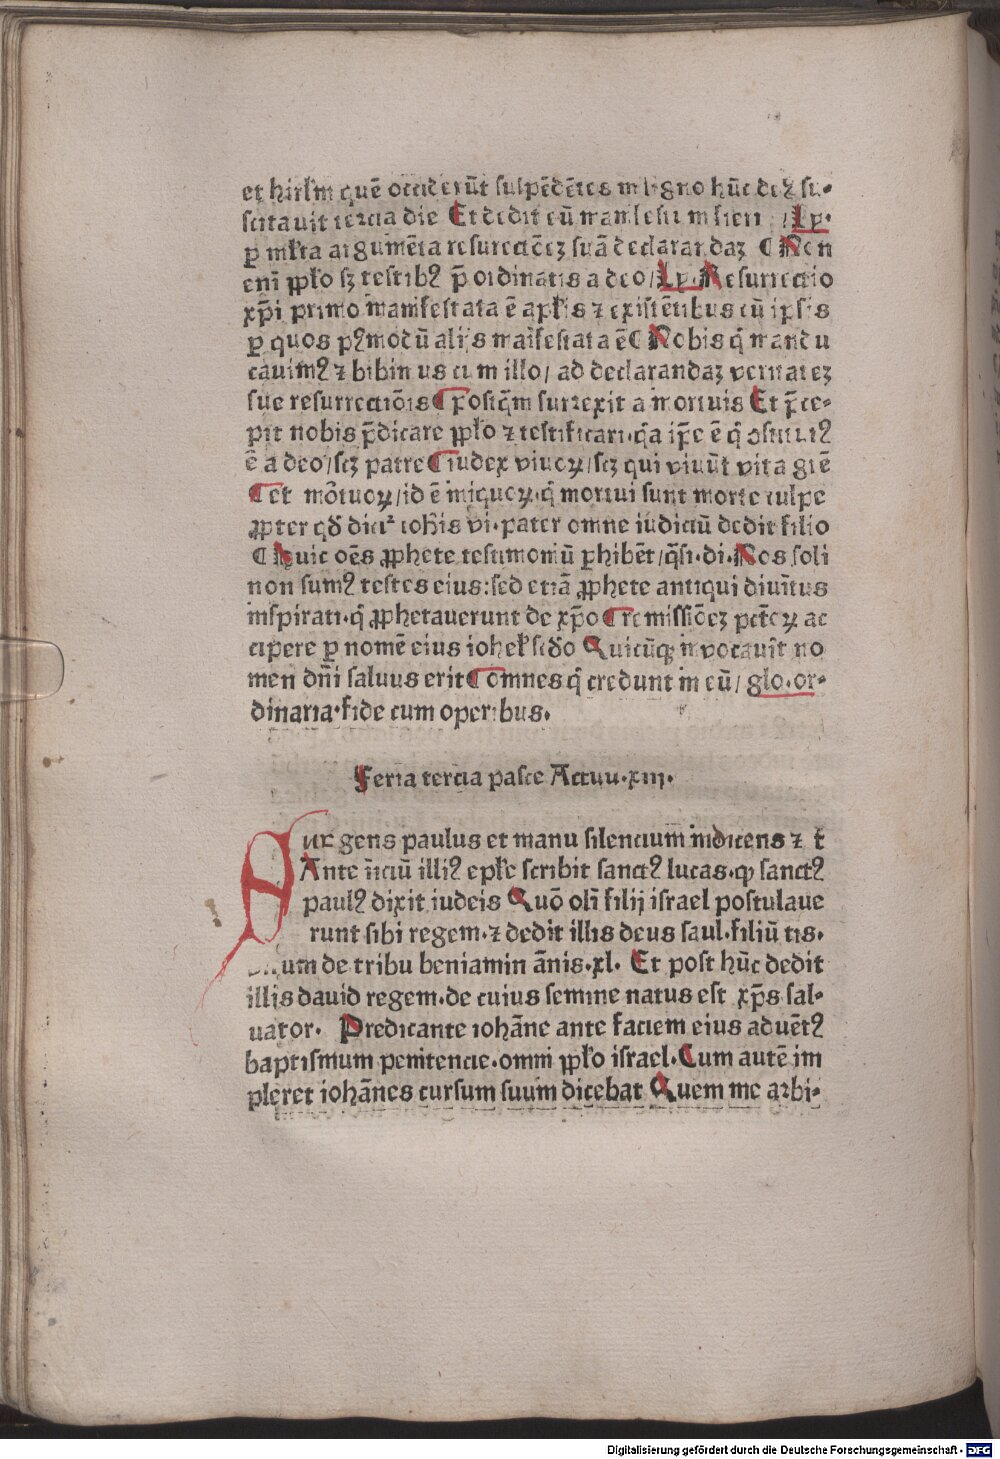 et hirlm̄ quē occiderūt suspēdētes in ligno hūc deꝰ su⸗
scitauit tercia die Et dedit eū manifestū fieri / Lp.
ꝑ ml̄ta argumēta resurectiōeꝫ suā declarandaꝫ ¶ Non
eni ̄ ꝓpl̄o sꝫ testibꝰ p̄ordinatis a deo / Lp. Resurrectio
xp̄i primo manifestata ē apl̄is ⁊ existētibus cū ipsis
ꝑ quos pꝰmodū alijs manifestata ē ¶ Nobis q̄ mandu
cauimꝰ ⁊ bibimus cum illo / ad declarandaꝫ veritateꝫ
sue resurrectiōis ¶ Postq̄m surrexit a mortuis Et p̄ce⸗
pit nobis p̄dicare ꝓpl̄o ⁊ testificari · q̄a ip̄e ē q̄ ꝯstitutꝰ
ē a deo / scꝫ patre ¶ iudex viuoꝝ / scꝫ qui viuūt vita grē
¶ et mōtuoꝝ / id ē iniquoꝝ · q̄ mortui sunt morte culpe
ꝓpter qd̄ dicit᷑ ioh̄is vi · pater omne iudiciū dedit filio
¶ Huic oēs ꝓphete testimoniū ꝑhibēt / q̄si · di · Nos soli
non sumꝰ testes eius : sed etiā ꝓphete antiqui diuīitus
inspirati · q̄ ꝓphetauerunt de xp̄o ¶ remissiōeꝫ pctōꝝ ac
cipere ꝑ nomē eius iohel̄ scd̄o Quicūqꝫ inuocauīt no
men dn̄i saluus erit ¶ omnes q̄ credunt in eū / glo · or⸗
dinaria · fide cum operibus ·
Feria tercia pasce Actuu · xiii ·
Surgens paulus et manu silencium indicens ⁊ t̄
Ante īiciū illiꝰ epl̄e scribit sanctꝰ lucas · ꝙ sanctꝰ
paulꝰ dixit iudeis Quō oli ̄ filij israel postulaue
runt sibi regem · ⁊ dedit illis deus saul · filiū cis ·
uirum de tribu beniamin ānis · xl · Et post hūc dedit
illis dauid regem · de cuius semine natus est xp̄s sal⸗
uator · Predicante iohāne ante faciem eius aduētꝰ
baptismum penitencie · omni ꝓpl̄o israel · Cum autē im
pleret iohānes cursum suum dicebat Quem me arbi⸗
Digitalisierung gefördert durch die Deutsche Forschungsgemeinschaft - DFG